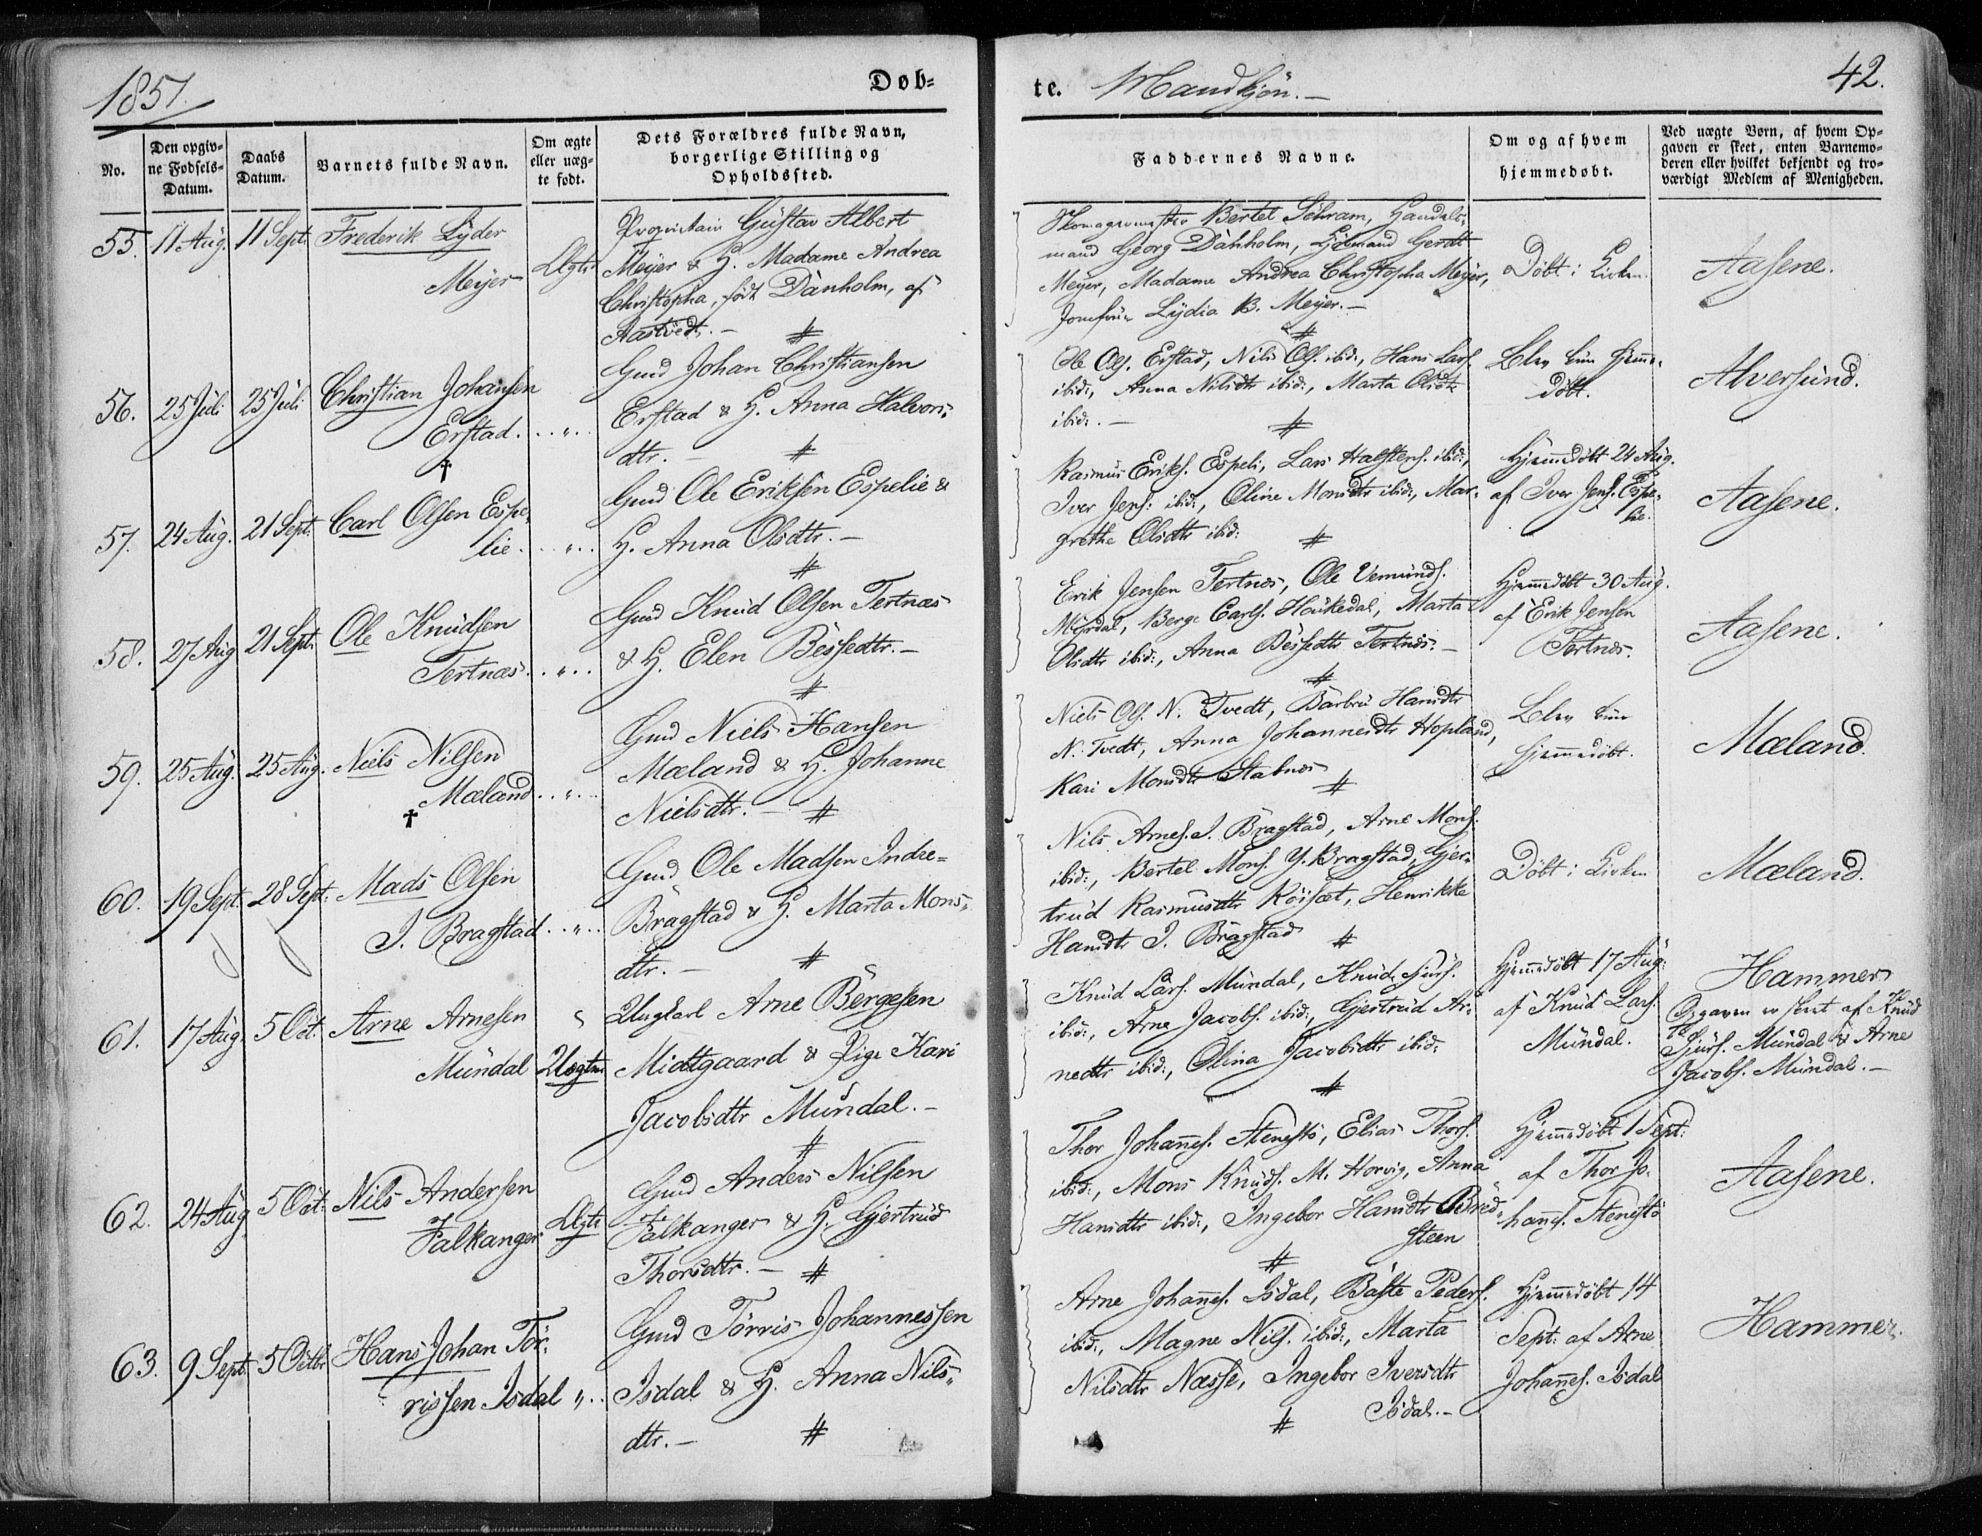 1851.
Døb-
te. Mandkjön.
42.
No.
Den opgiv-
ne Fødsels-
Datum.
Daabs
Datum.
Barnets fulde Navn.
Om ægte
eller uæg-
te født.
Dets Forældres fulde Navn,
borgerlige Stilling og
Opholdssted.
Faddernes Navne.
Om og af hvem
hjemmedøbt.
Ved uægte Børn, af hvem Op-
gaven er skeet, enten Barnemo-
deren eller hvilket bekjendt og tro-
værdigt Medlem af Menigheden.
55. 11 Aug. 11 Sept. Frederik Lyder
Meyer
Ægte
Proprietair Gustav Albert
Meyer & H. Madame Andrea
Christopha, født Danholm, af
Aastvedt. —
Skomagermester Bertel Schram, Handels-
mand Georg Danholm, Gerdt
Meyer, Madame Andrea Christopha Meyer,
Jomfrue Lydia B. Meyer. —
Döbt i Kirken
Aasene.
56. 25 Juli 25 Juli Christian Johansen
Erstad. †
Gmd Johan Christiansen
Erstad & H. Anna Halvors-
dtr. —
Ole Ols. Erstad, Nils Ols. ibid:, Hans Lars.
ibid:, Anna Nilsdtr ibid:, Marta Olsdtr
ibid:. —
Blev kun hjemme-
döbt.
Alversund.
57. 24 Aug. 21 Sept. Carl Olsen Espe-
lie.
Gmd Ole Eriksen Espelie &
H. Anna Olsdtr. —
Rasmus Eriks. Espeli, Lars Halstens. ibid:,
Iver Jens. ibid:, Oline Monsdtr ibid:, Mar-
grethe Olsdtr ibid:
Hjemmedöbt 24 Aug.
af Iver Jens. Espe-
lie.
Aasene.
58. 27 Aug 21 Sept. Ole Knudsen
Tertnæs.
Gmd Knud Olsen Tertnæs
& H. Elen Bessedtr. —
Erik Jensen Tertnæs, Ole Vemunds.
Myrdal, Berge Carls. Haukedal, Marta
Olsdtr ibid:, Anna Bessedtr Tertnæs. —
Hjemmedöbt 30 Aug.
af Erik Jensen
Tertnæs.
Aasene.
59. 25 Aug. 25 Aug. Niels Nilsen
Mæland †
Gmd Niels Hansen
Mæland & H. Johanne
Nielsdtr. —
Niels Ols. N. Tvedt, Barbru Hansdtr
N. Tvedt, Anna Johannesdtr Hopland,
Kari Monsdtr Stabnæs
Blev kun
hjemmedöbt.
Mæland.
60. 19 Sept. 28 Sept. Mads Olsen
I. Bragstad
Gmd Ole Madsen Indre-
Bragstad & H. Marta Mons-
dtr. —
Nils Arnes. I. Bragstad, Arne Mons.
ibid:, Bertel Mons. Y. Bragstad, Gjer-
trud Rasmusdtr Röisæt, Henrikke
Hansdtr I. Bragstad
Döbt i Kirken
Mæland.
61. 17 Aug. 5 Oct. Arne Arnesen
Mundal
Uægte
Ungkarl Arne Bergesen
Midtgaard & Pige Kari
Jacobsdtr Mundal. —
Knud Lars. Mundal, Knud Sjurs.
ibid:, Arne Jacobs. ibid:, Gjertrud Ar-
nedtr ibid:, Olina Jacobsdtr ibid:
Hjemmedöbt 17 Aug:
af Knud Lars.
Mundal.
Hammer
Opgaven er skeet af Knud
Sjurs. Mundal & Arne
Jacobs. Mundal. —
62. 24 Aug 5 Oct. Nils Andersen
Falkanger
Ægte
Gmd Anders Nilsen
Falkanger & H. Gjertrud
Thorsdtr. —
Thor Johans. Stenestö, Elias Thors.
ibid:, Mons Knuds. M. Horvig, Anna
Hansdtr ibid:, Ingebor Hansdtr Bred-
steen
Hjemmedöbt 1 Sept:
af Thor Jo-
hans. Stenestö
Aasene.
63. 9 Sept. 5 Octbr Hans Johan Tör-
rissen Isdal
Gmd Törris Johannessen
Isdal & H. Anna Nils-
dtr. —
Arne Johans. Isdal, Baste Peders.
ibid:, Magne Nils. ibid:, Marta
Nilsdtr Næsse, Ingebor Iversdtr
Isdal. —
Hjemmedöbt 14
Sept: af Arne
Johans. Isdal
Hammer.